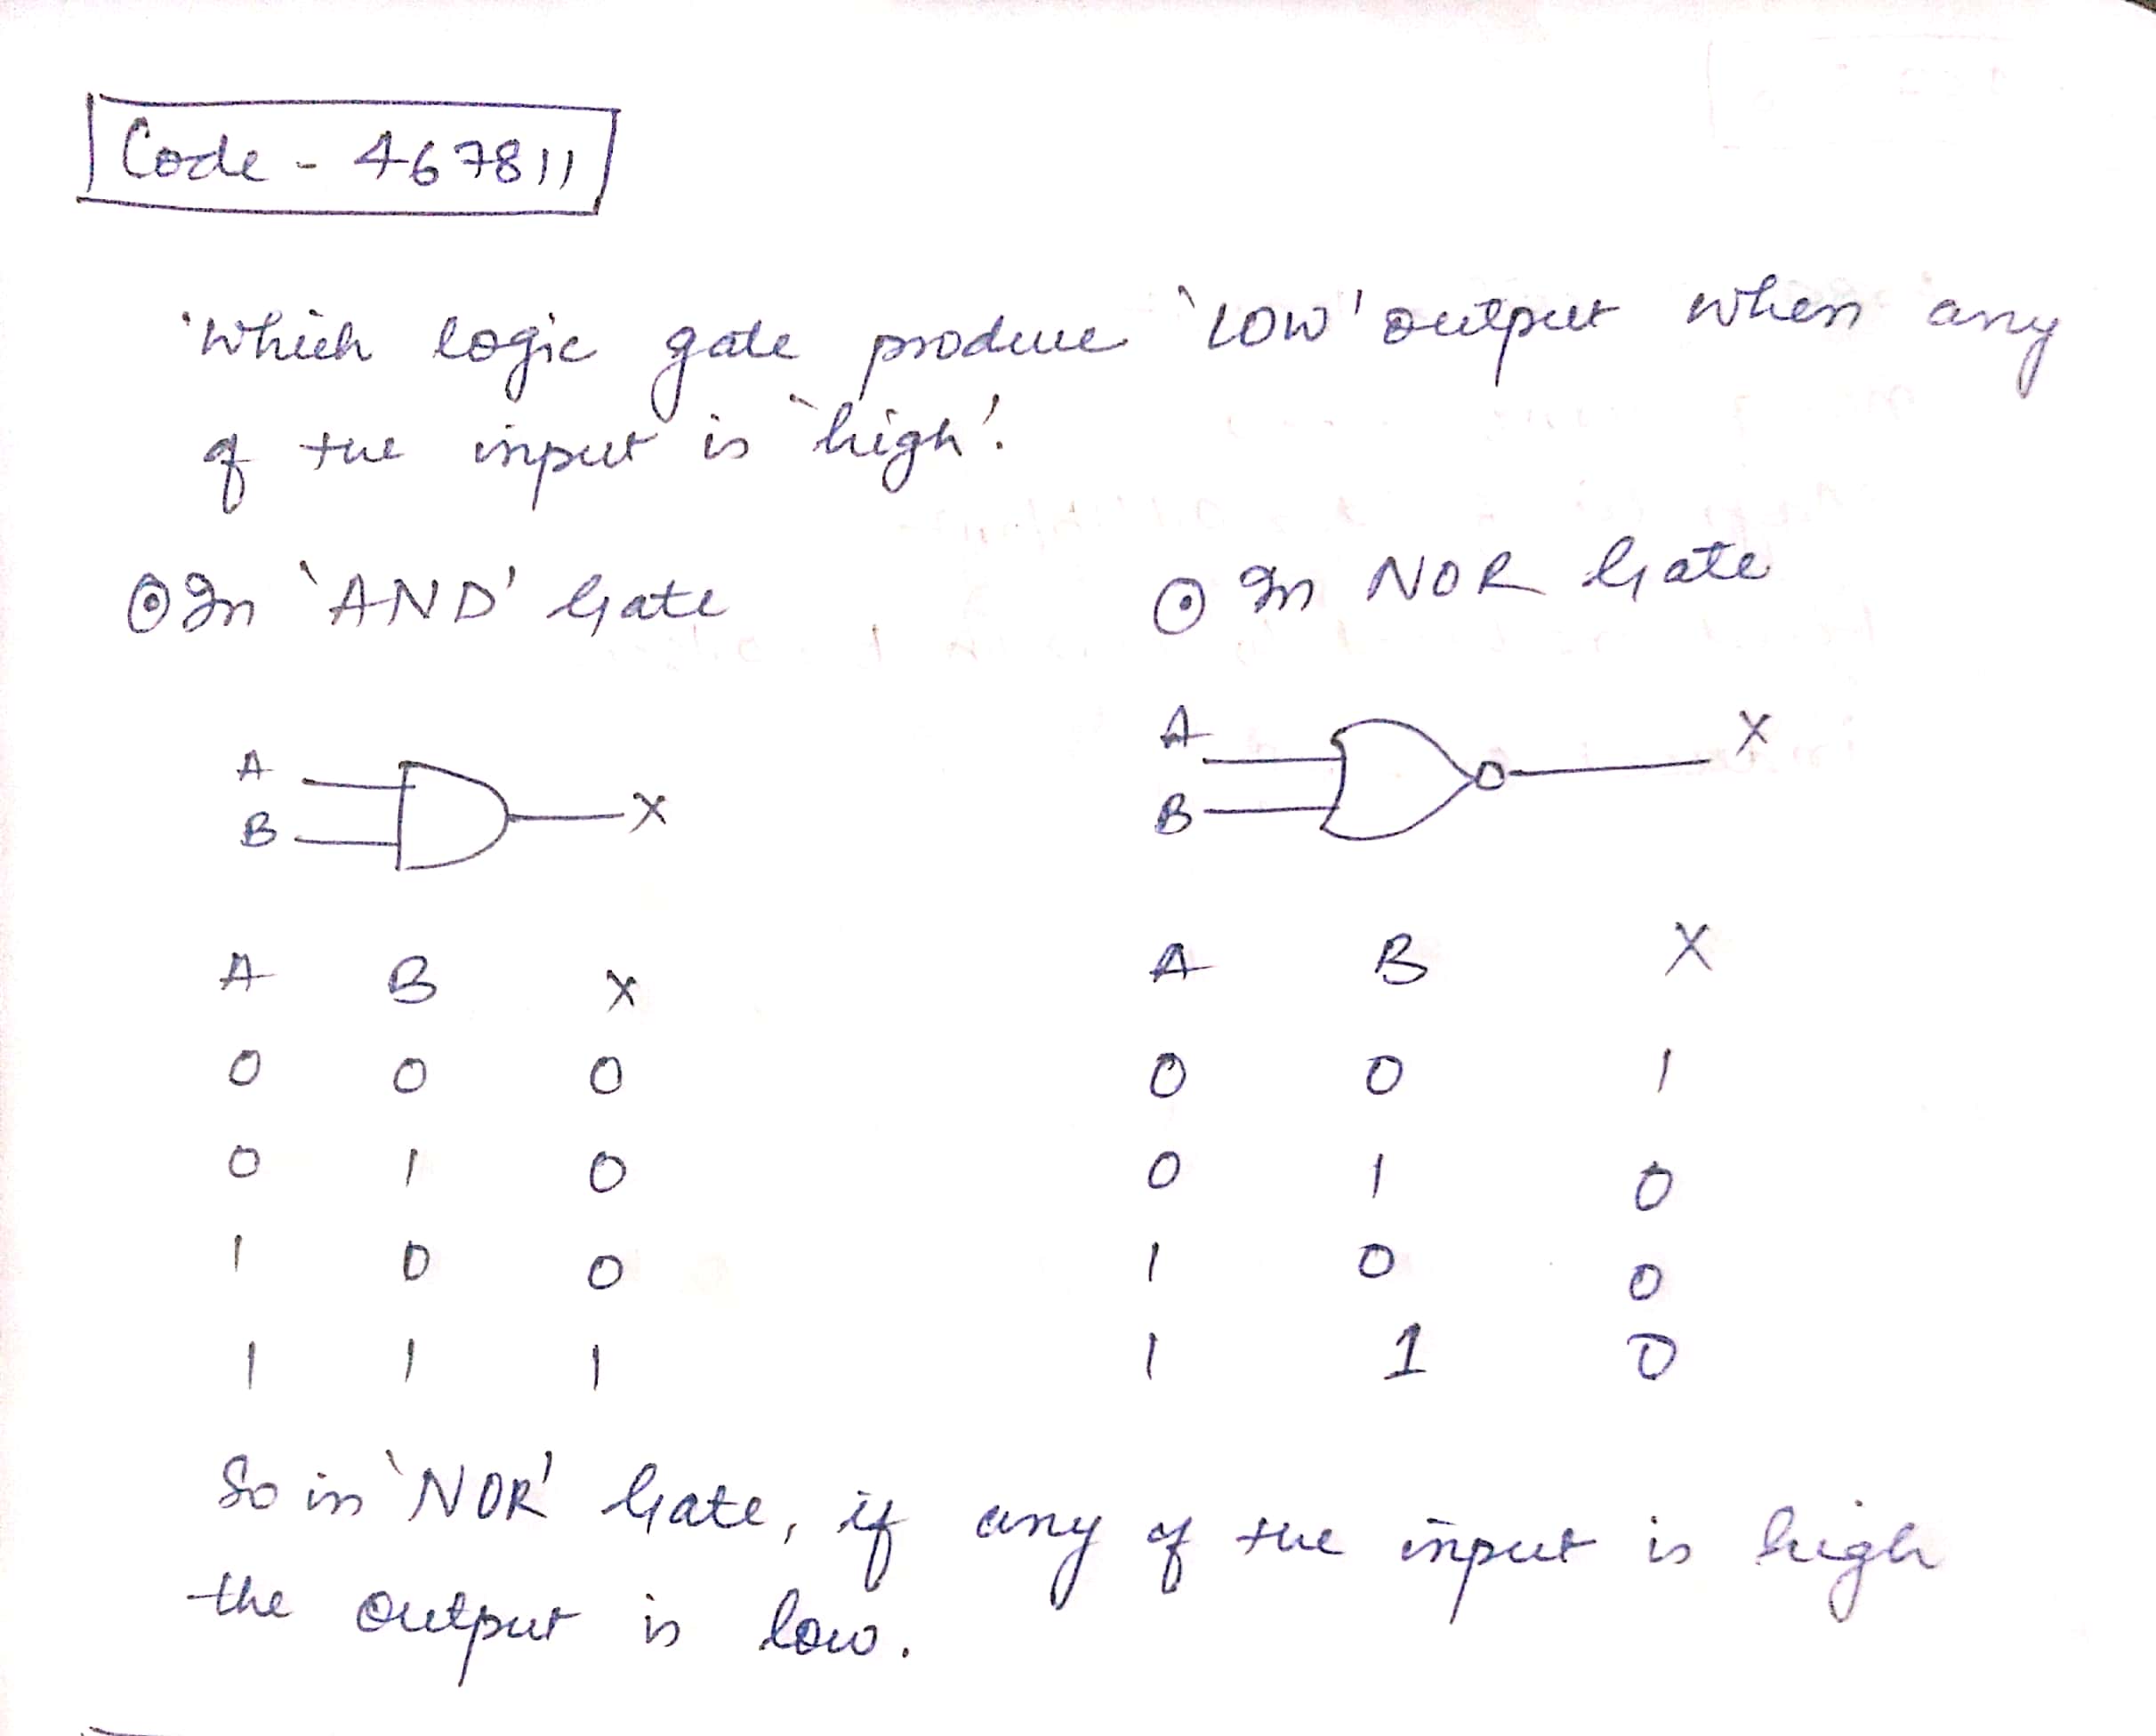 Code - 467811
'Which logic gate produce 'LOW' output when any
of the input is 'high'.
In 'AND' Gate
In NOR Gate
A
B
X
A
B
X
A B X
0 0 0
0 1 0
1 0 0
1 1 1
A B X
0 0 1
0 1 0
1 0 0
1 1 0
So in 'NOR' Gate, if any of the input is high
the output is low.